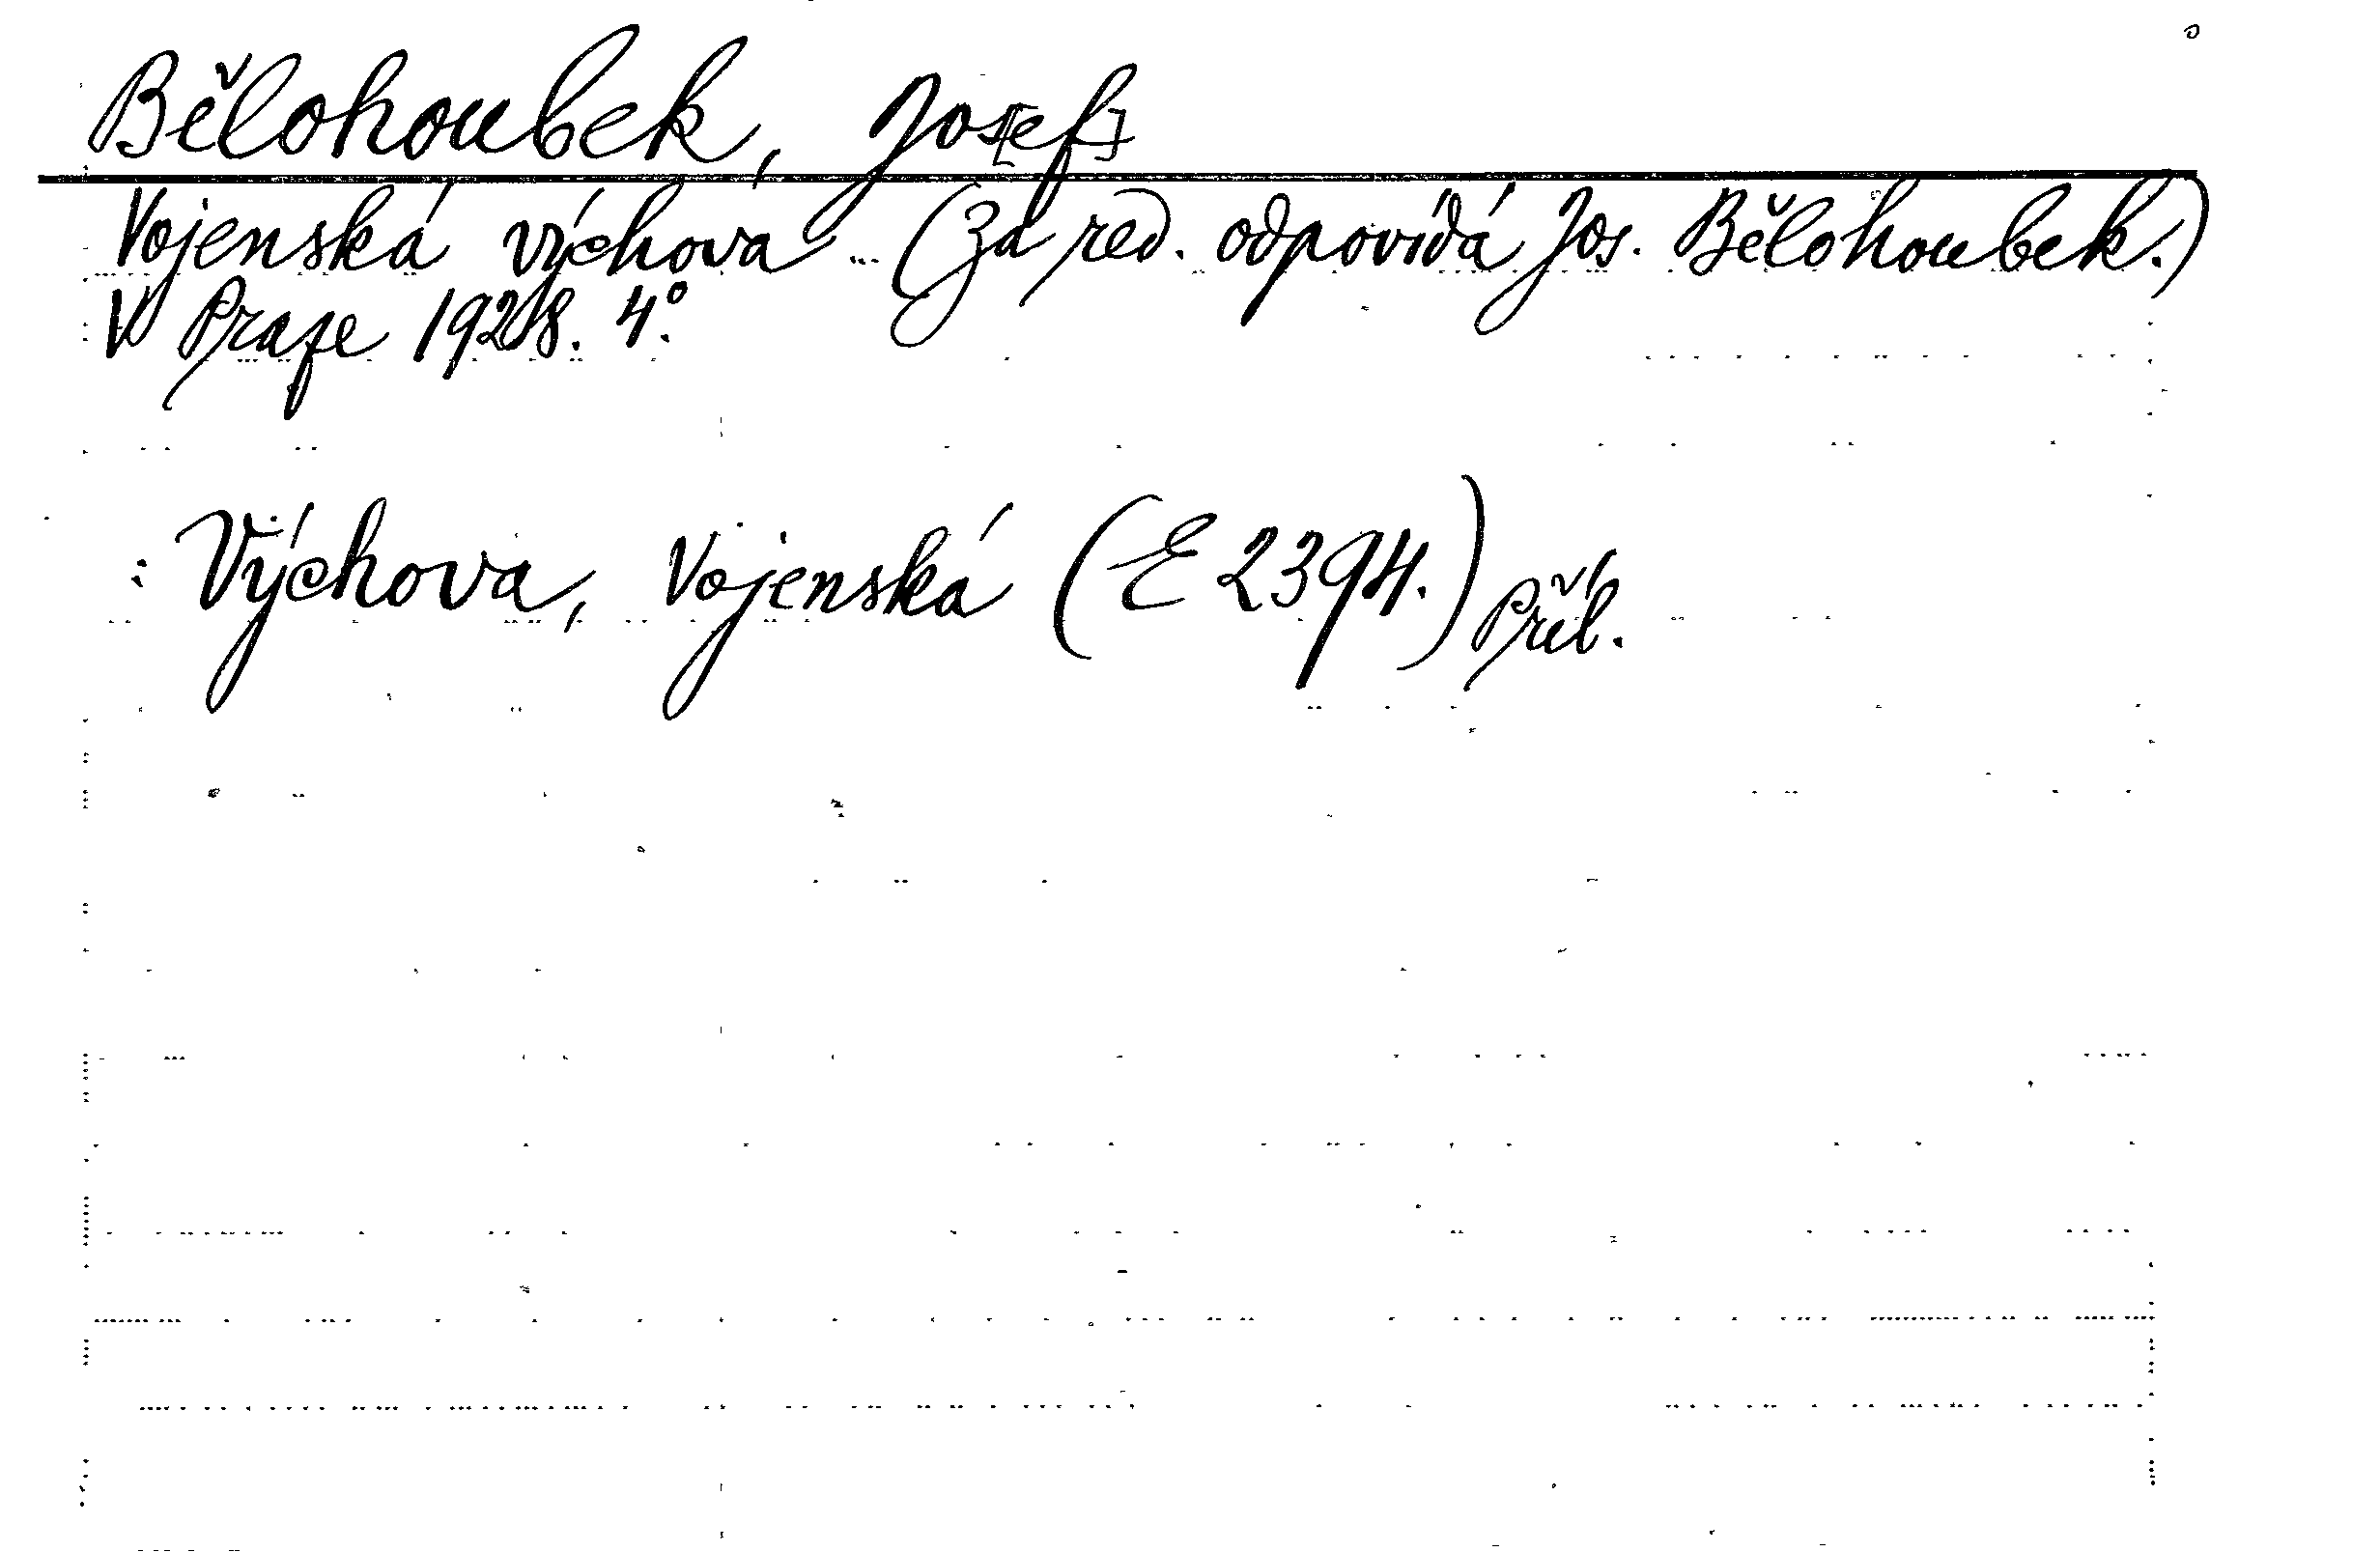 Bělohoubek, Jos[ef]
Vojenská výchova... (Za red. odpovídá Jos. Bělohoubek.)
V Praze 1928. 4°.
: Výchova, Vojenská (E 2394.) Příl.